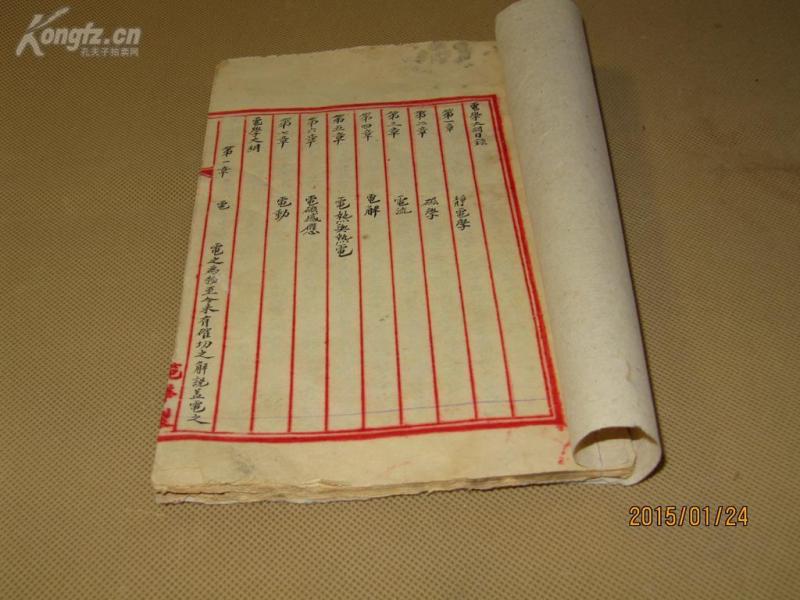 Kongfz.cn
孔夫子拍卖网
電學大綱目錄
第一章 靜電學
第二章 磁學
第三章 電流
第四章 電解
第五章 電熱與熱電
第六章 電磁感應
第七章 電動
電學之綱
第一章 電
電之為物至今未有確切之解說蓋電之
2015/01/24